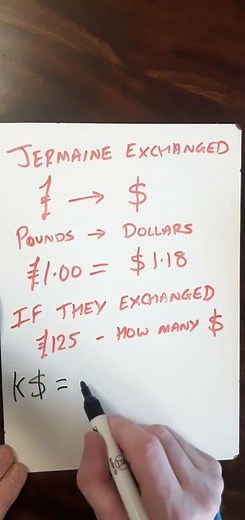 JERMAINE EXCHANGED
£ → $
POUNDS → DOLLARS
£1.00 = $1.18
IF THEY EXCHANGED
£125 - HOW MANY $
K$ =